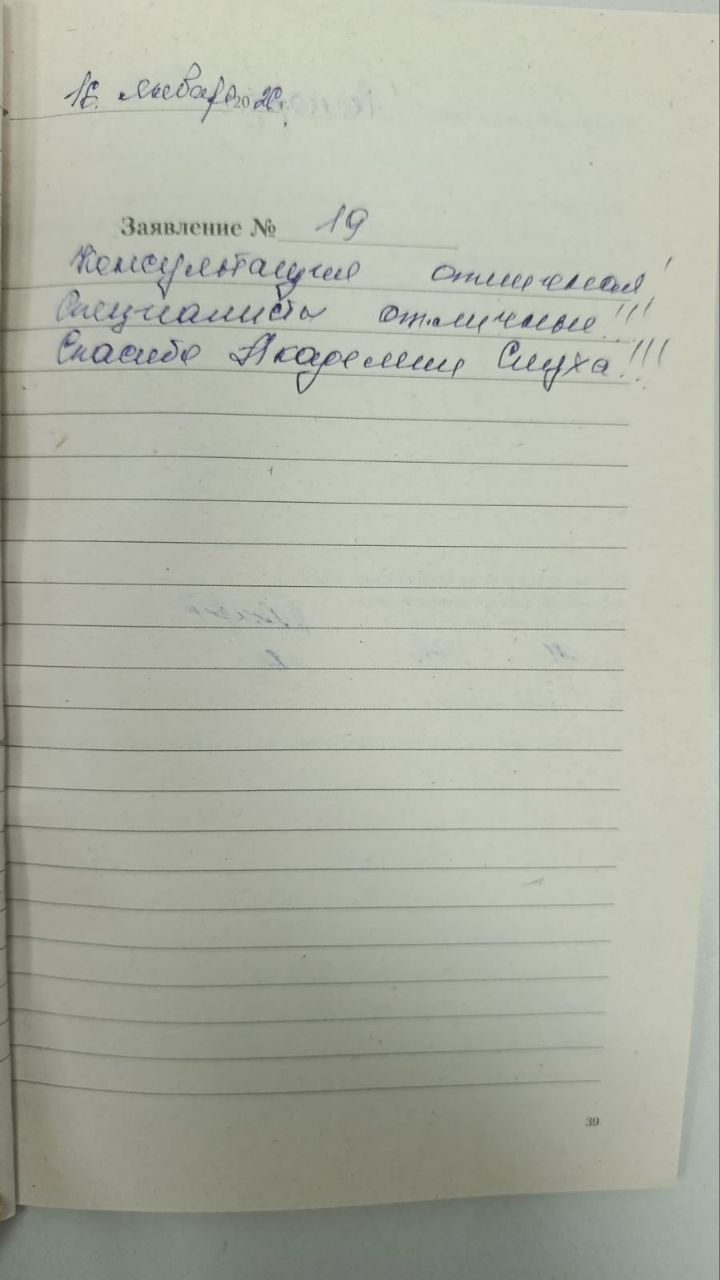 16. января 2026г.
Заявление № 19
Консультация отличная!
Специалисты отличные!!!
Спасибо Академии Слуха!!!
39